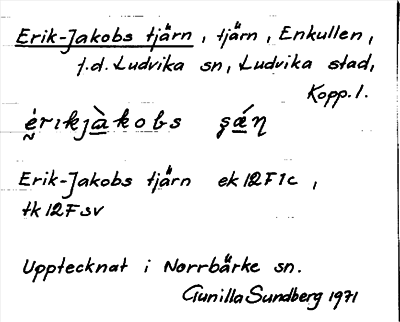 Erik-Jakobs tjärn, tjärn, Enkullen,
f.d. Ludvika sn, Ludvika stad,
Kopp. l.
Erik-Jakobs tjärn ek 12F1c,
tk 12F sv
Upptecknat i Norrbärke sn.
Gunilla Sundberg 1971